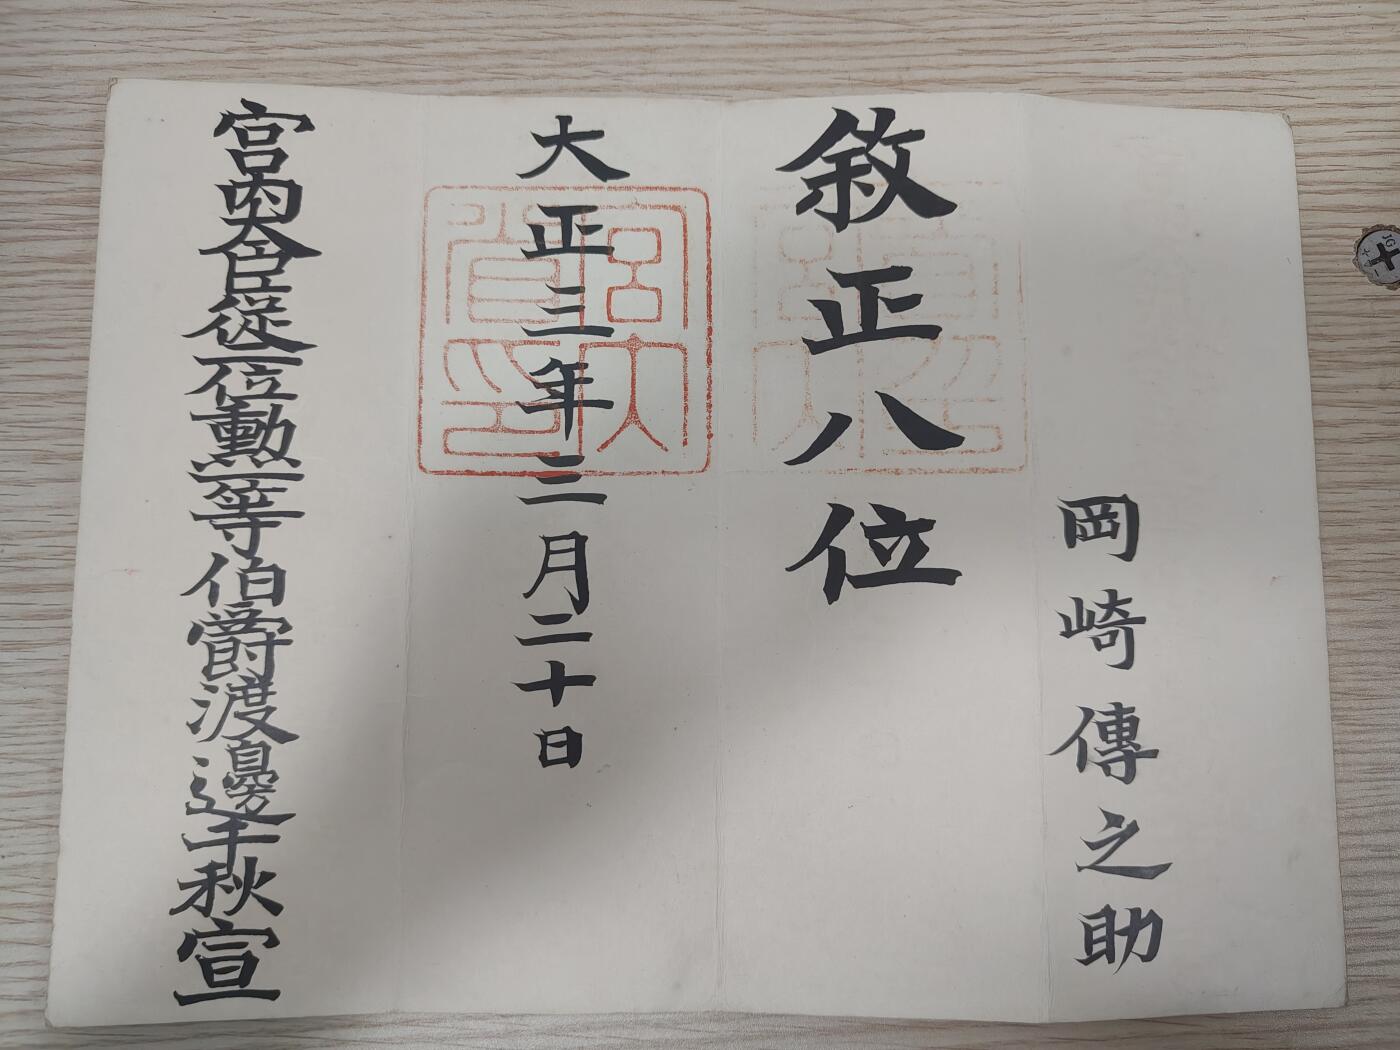 岡崎傳之助
敘正八位
大正三年三月二十日
宮内大臣從二位勲一等伯爵渡邊千秋宣
宮内省印